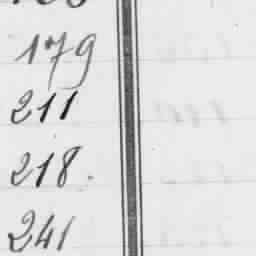 179
211
218.
241